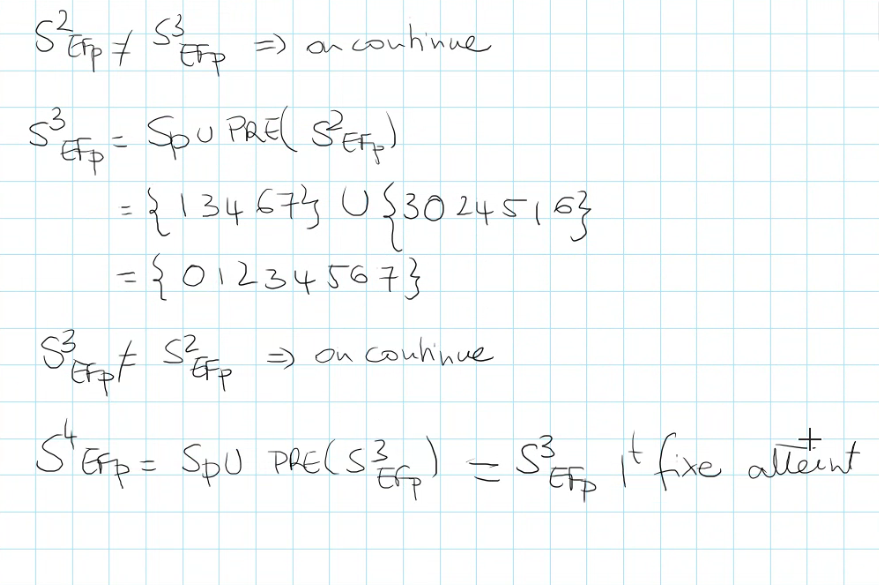 S²EFp ≠ S³EFp => on continue
S³EFp = Sp ∪ PRE( S²EFp)
= {13467} ∪ {3024516}
= {01234567}
S³EFp ≠ S²EFp => on continue
S⁴EFp = Sp ∪ PRE(S³EFp) = S³EFp pt fixe atteint